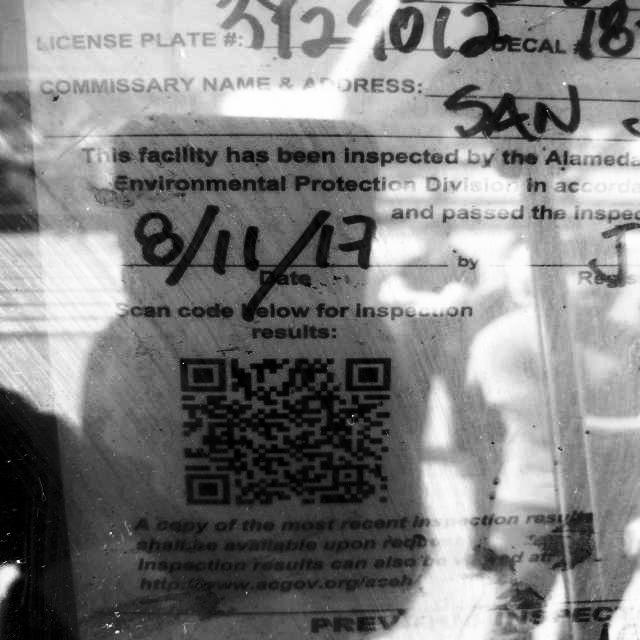 LICENSE PLATE #: 3Y29012 DECAL 18
COMMISSARY NAME & ADDRESS:
SAN
This facility has been inspected by the Alameda
Environmental Protection Division in accorda
and passed the inspec
8/11/17
by
Date
Scan code below for inspection
results:
A copy of the most recent inspection results
shall be available upon
Inspection results can also be
http://www.acgov.org/aceh